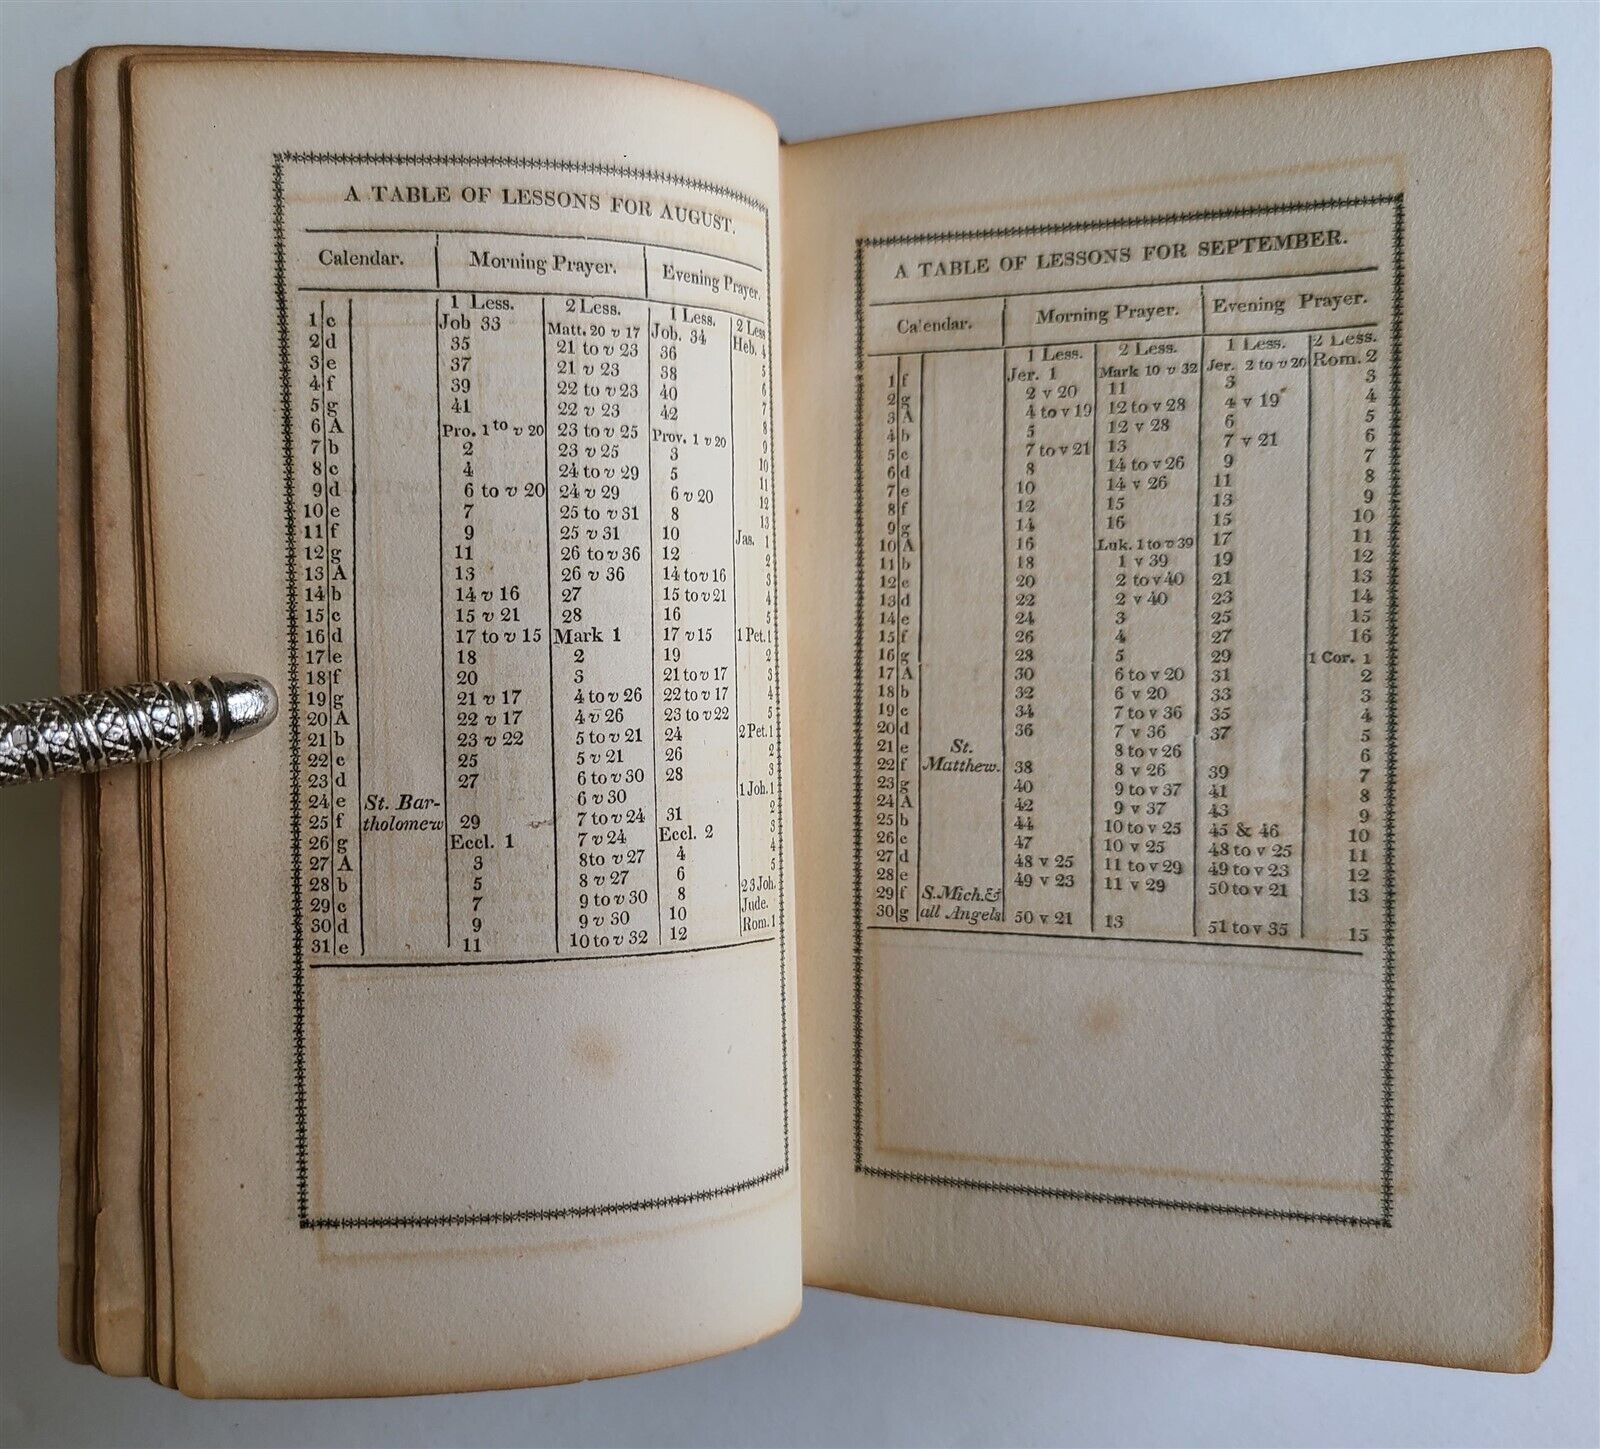 A TABLE OF LESSONS FOR AUGUST.
Calendar. Morning Prayer. Evening Prayer.
1 Less. 2 Less. 1 Less. 2 Less
1 c Job 33 Matt. 20 v 17 Job. 34 Heb. 4
2 d 35 21 to v 23 36 5
3 e 37 21 v 23 38 6
4 f 39 22 to v 23 40 7
5 g 41 22 v 23 42 8
6 A Pro. 1 to v 20 23 to v 25 Prov. 1 v 20 9
7 b 2 23 v 25 3 10
8 c 4 24 to v 29 5 11
9 d 6 to v 20 24 v 29 6 v 20 12
10 e 7 25 to v 31 8 13
11 f 9 25 v 31 10 Jas. 1
12 g 11 26 to v 36 12 2
13 A 13 26 v 36 14 to v 16 3
14 b 14 v 16 27 15 to v 21 4
15 c 15 v 21 28 16 5
16 d 17 to v 15 Mark 1 17 v 15 1 Pet. 1
17 e 18 2 19 2
18 f 20 3 21 to v 17 3
19 g 21 v 17 4 to v 26 22 to v 17 4
20 A 22 v 17 4 v 26 23 to v 22 5
21 b 23 v 22 5 to v 21 24 2 Pet. 1
22 c 25 5 v 21 26 2
23 d 27 6 to v 30 28 3
24 e St. Bar- 6 v 30 1 Joh. 1
25 f tholomew 29 7 to v 24 31 2
26 g Eccl. 1 7 v 24 Eccl. 2 3
27 A 3 8 to v 27 4 4
28 b 5 8 v 27 6 5
29 c 7 9 to v 30 8 2 3 Joh.
30 d 9 9 v 30 10 Jude.
31 e 11 10 to v 32 12 Rom. 1
A TABLE OF LESSONS FOR SEPTEMBER.
Calendar. Morning Prayer. Evening Prayer.
1 Less. 2 Less. 1 Less. 2 Less.
1 f Jer. 1 Mark 10 v 32 Jer. 2 to v 20 Rom. 2
2 g 2 v 20 11 3 3
3 A 4 to v 19 12 to v 28 4 v 19 4
4 b 5 12 v 28 6 5
5 c 7 to v 21 13 7 v 21 6
6 d 8 14 to v 26 9 7
7 e 10 14 v 26 11 8
8 f 12 15 13 9
9 g 14 16 15 10
10 A 16 Luk. 1 to v 39 17 11
11 b 18 1 v 39 19 12
12 c 20 2 to v 40 21 13
13 d 22 2 v 40 23 14
14 e 24 3 25 15
15 f 26 4 27 16
16 g 28 5 29 1 Cor. 1
17 A 30 6 to v 20 31 2
18 b 32 6 v 20 33 3
19 c 34 7 to v 36 35 4
20 d 36 7 v 36 37 5
21 e St. 8 to v 26 6
22 f Matthew. 38 8 v 26 39 7
23 g 40 9 to v 37 41 8
24 A 42 9 v 37 43 9
25 b 44 10 to v 25 45 & 46 10
26 c 47 10 v 25 48 to v 25 11
27 d 48 v 25 11 to v 29 49 to v 23 12
28 e 49 v 23 11 v 29 50 to v 21 13
29 f S. Mich. &
30 g all Angels 50 v 21 13 51 to v 35 15